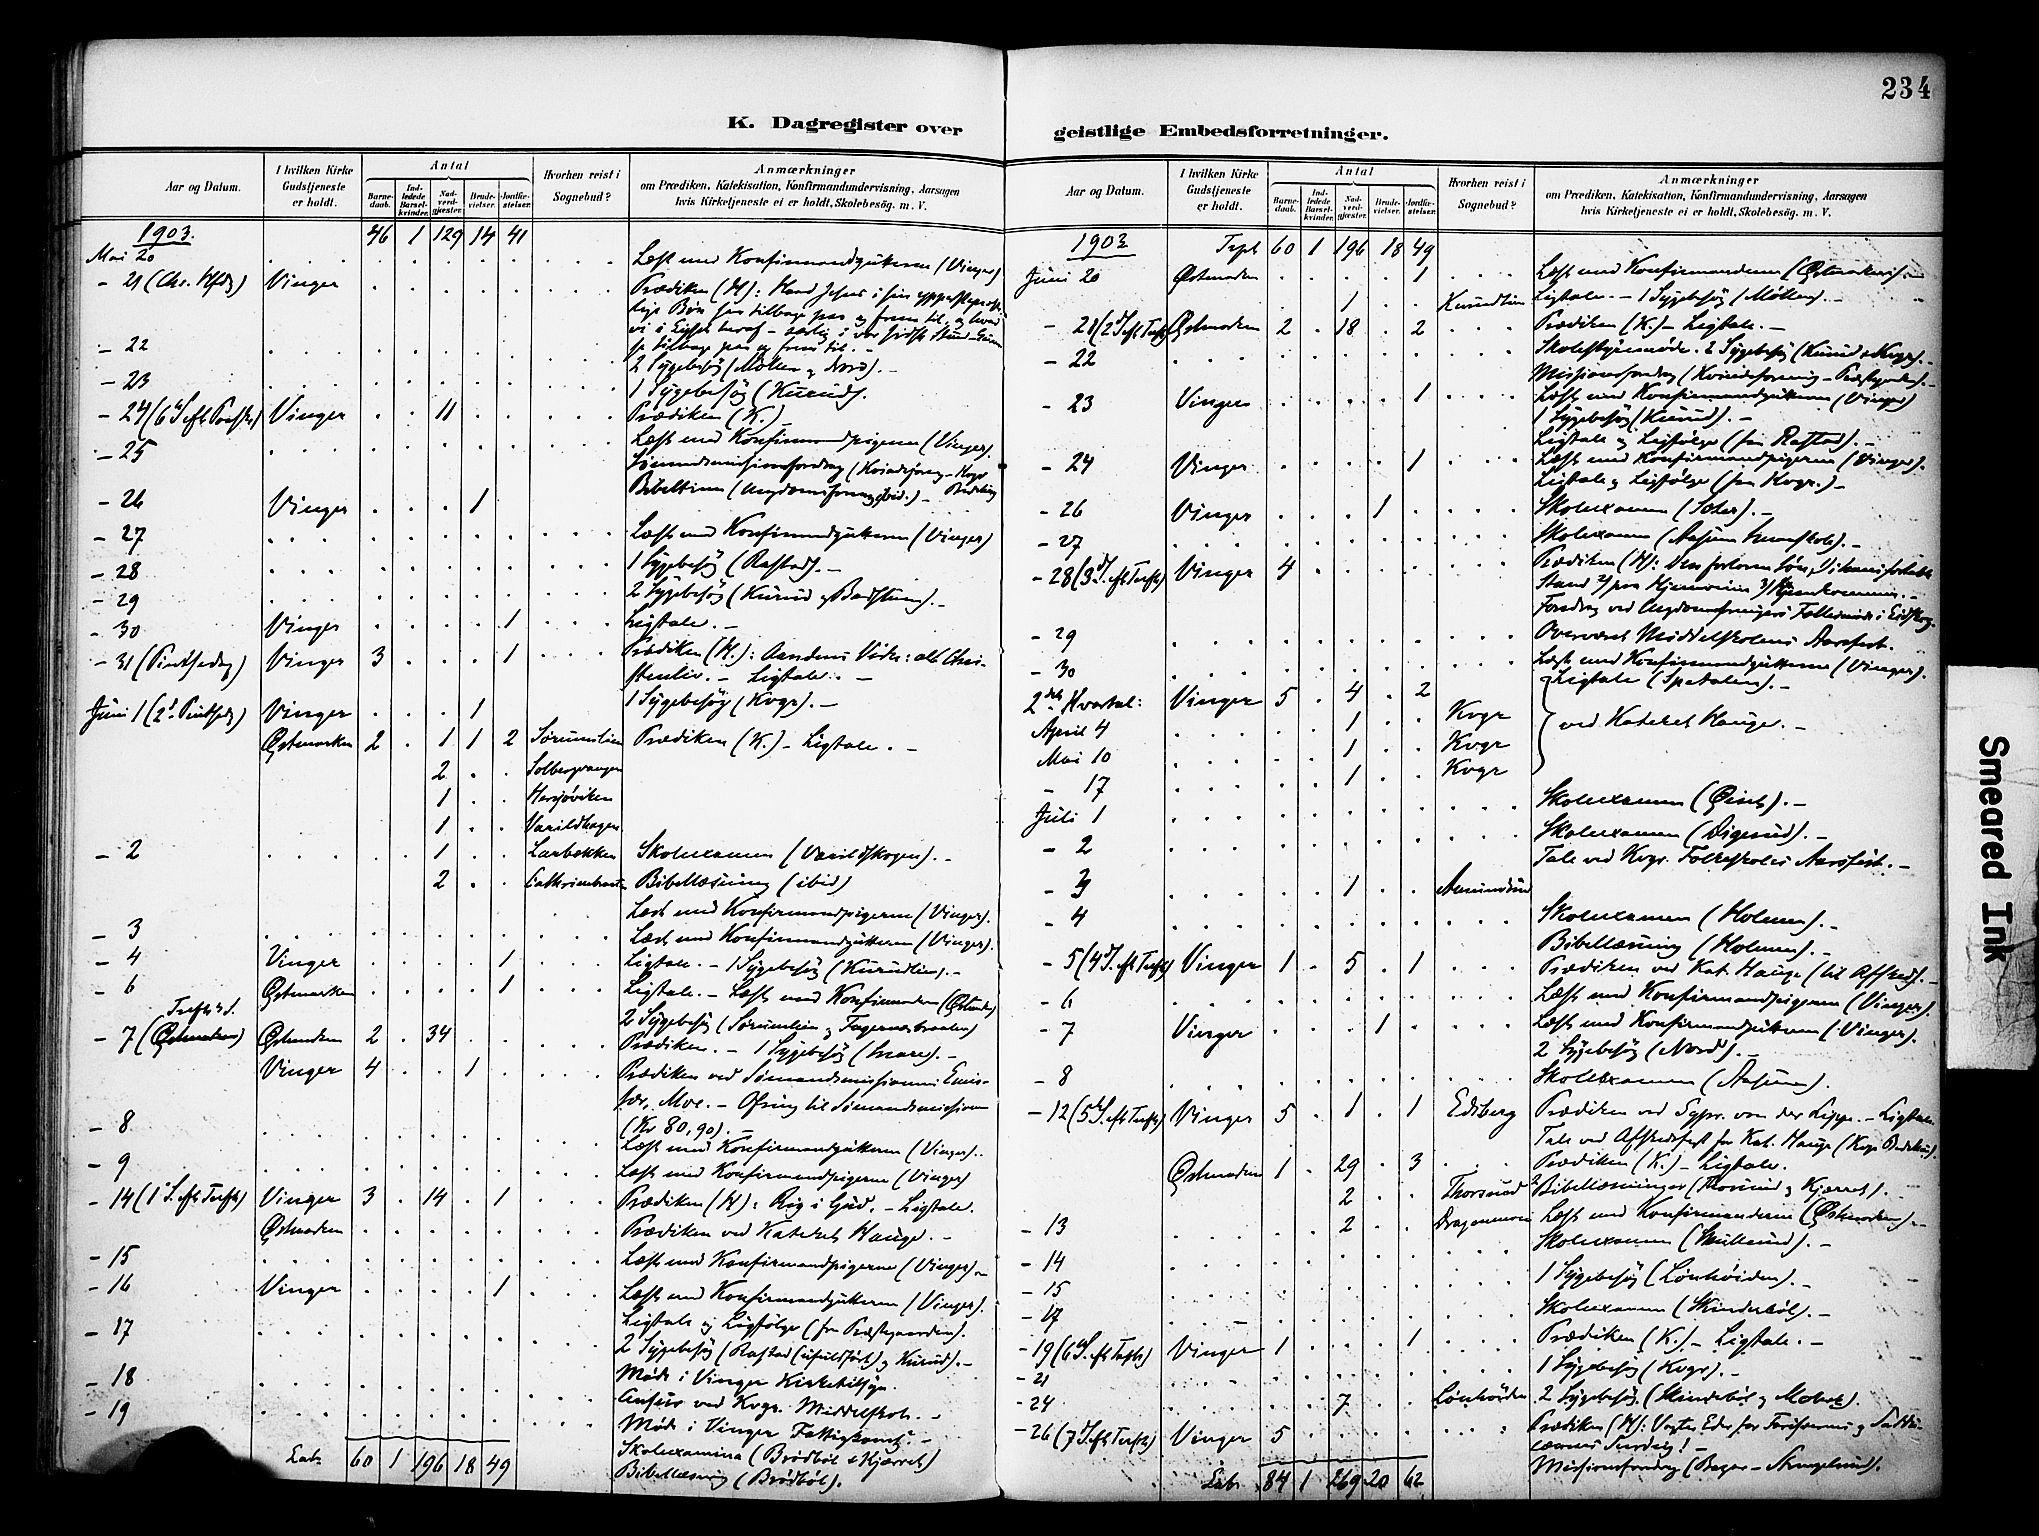 234
K. Dagregister over
Aar og Datum.
I hvilken Kirke Gudstjeneste er holdt.
Antal
Barnedaab.
Indledede Barselkvinder.
Nadverdgjester.
Brudevielser.
Jordfæstelser.
Hvorhen reist i Sognebud?
Anmærkninger
om Prædiken, Katekisation, Konfirmandundervisning, Aarsagen
hvis Kirketjeneste ei er holdt, Skolebesøg. m. V.
1903. 46 1 129 14 41
Mai 20 Læst med Konfirmandgutterne (Vinger)
- 21 (Chr. Hfdg) Vinger Prædiken (H):
- 22 2 Sygebesøg (Møller og Nord). -
- 23 1 Sygebesøg (Kurud).
- 24 (6 S. eft. Paaske) Vinger . . 11 Prædiken (K.)
- 25 Læst med Konfirmandpigerne (Vinger).
- 26 Vinger . . . 1
- 27 Læst med Konfirmandgutterne (Vinger)
- 28 1 Sygebesøg (Rastad). -
- 29 2 Sygebesøg (Kurud og
- 30 Vinger . . . . 1 Ligtale. -
- 31 (Pintsedag) Vinger 3 . . . 1 Prædiken (H.): Aandens Virke: alt Chri-
stenliv. - Ligtale. -
Juni 1 (2d Pintsedg) Vinger . . . 1 1 Sygebesøg (Kvgr). -
Østmarken 2 . 1 1 2 Sørumlien Prædiken (K.) - Ligtale. -
2 . . Solbergvangen
1 . . Hersjøviken
1 . . Varildhagen
- 2 1 . . Larbekken Skoleexamen (Varildskogen). -
2 . . Bibellæsning (ibid)
Læst med Konfirmandpigerne (Vinger).
- 3 Læst med Konfirmandgutterne (Vinger).
- 4 Vinger . . . . 1 Ligtale. - 1 Sygebesøg (Kurudlien). -
- 6 Østmarken . . . . 1 Ligtale. - Læst med Konfirmanderne
2 Sygebesøg (Sørumlien og
- 7 (Østmarken) Østmarken 2 . 34 Prædiken. - 1 Sygebesøg (Snare). -
Vinger 4 . . 1 Prædiken ved Sømandsmissionens Emis-
sær, Moe. - Ofring til Sømandsmissionen
- 8 (Kr 80,90). -
Læst med Konfirmandgutterne (Vinger).
- 9 Læst med Konfirmandpigerne (Vinger)
- 14 (1 S. eft. Trefh) Vinger 3 . 14 . 1 Prædiken (H): Rig i Gud. - Ligtale.
Østmarken Prædiken ved Katekel Hauge. -
- 15 Læst med Konfirmandpigerne (Vinger). -
- 16 Vinger . . . . 1 Læst med Konfirmandgutterne (Vinger).
Ligtale og Ligfølge (fra Præstegaarden).
- 17 2 Sygebesøg (Rastad (udført) og Kurud). -
- 18 Møde i Vinger Kirketilsyn.
Censur ved Kvgr. Middelskole. -
- 19 Møde i Vinger Fattigkoms. -
Skoleexamina (Brødbøl & Kjerret)
Bibellæsning (Brødbøl).
Lats 60 1 196 18 49
geistlige Embedsforretninger.
Aar og Datum.
I hvilken Kirke Gudstjeneste er holdt.
Antal
Barnedaab.
Indledede Barselkvinder.
Nadverdgjester.
Brudevielser.
Jordfæstelser.
Hvorhen reist i Sognebud?
Anmærkninger
om Prædiken, Katekisation, Konfirmandundervisning, Aarsagen
hvis Kirketjeneste ei er holdt, Skolebesøg. m. V.
1903 Trpt 60 1 196 18 49
Juni 20 Østmarken . . . . 1 Læst med Konfirmanderne (Østmarken). -
1 Kurudlien Ligtale. - 1 Sygebesøg (Møller). -
- 21 (2d S. eft. Trefh) Østmarken 2 . 18 . 2 Prædiken (K.) - Ligtale. -
- 22 Skolestyremøde. 2 Sygebesøg (Kurud & Kvgr). -
Missionsforedrag (Kvindeforening - Præstegaarden). -
- 23 Vinger . . . . 1 Læst med Konfirmandgutterne (Vinger)
1 Sygebesøg (Kurud). -
Ligtale og Ligfølge (fra Rastad). -
- 24 Vinger . . . . 1 Læst med Konfirmandpigerne (Vinger).
Ligtale og Ligfølge (fra Kvgr.) -
- 26 Vinger . . . 1 Skoleexamen (Soler). -
- 27 Skoleexamen (Aasum -
- 28 (3d S. eft. Trefh) Vinger 4 Prædiken (H): Den fortorne Søn, 1) hans fortabte
Stand 2) paa Hjemveien 3) Hjemkommen. -
Foredrag ved Ungdomsforeningers Fællesmøde i Eidskog.
- 29 Overværet Middelskolens Aarsfest.
- 30 Læst med Konfirmandgutterne (Vinger).
2det Kvartal: Vinger 5 . 4 . 2 Ligtale (Spetalen). -
April 4 1 Kvgr ved Katekel Hauge. -
Mai 10 1 Kvgr
- 17 1 Kvgr
Juli 1 Skoleexamen (Øiset). -
- 2 Skoleexamen (Digerud). -
Tale ved Kvgr. Folkeskoles Aarsfest. -
- 3 1 Aamundrud
- 4 Skoleexamen (Holmen). -
Bibellæsning (Holmen). -
- 5 (4 S. eft. Trefh) Vinger 1 . 5 . 1 Prædiken ved Kat. Hauge (til Afsked). -
- 6 Læst med Konfirmandpigerne (Vinger).
- 7 Vinger . . . 1 Læst med Konfirmandgutterne (Vinger).
2 Sygebesøg (Nord). -
- 8 Skoleexamen (Aasum).
- 12 (5d S. eft. Trefh) Vinger 5 . 1 . 1 Edsberg Prædiken ved Sgpr. von der Lippe. - Ligtale
Tale ved Afskedsfest for Kat. Hauge
Østmarken 1 . 29 . 3 Prædiken (K.) - Ligtale.
2 Thorsrud 2 Bibellæsninger (Thorsrud og Kjerret). -
- 13 2 Dragonmoen Læst med Konfirmanderne (Østmarken). -
Skoleexamen (Mullerud). -
- 14 1 Sygebesøg (Lønhøiden). -
- 15
- 17 Skoleexamen (Skinderbøl). -
- 19 (6 S. eft. Trefh) Vinger 1 . . . 1 Prædiken (K.) - Ligtale. -
- 21 1 Sygebesøg (Kvgr). -
- 24 7 Lønhøiden 2 Sygebesøg (Skinderbøl og Moberg). -
- 26 (7 S. eft. Trefh) Vinger 5 Prædiken (H): Vogter Eder for Farisæernes og Saddu-
cæernes Surdeig! -
Missionsforedrag (Bager - Stenglerud).
Lats 84 1 269 20 62
Smeared Ink